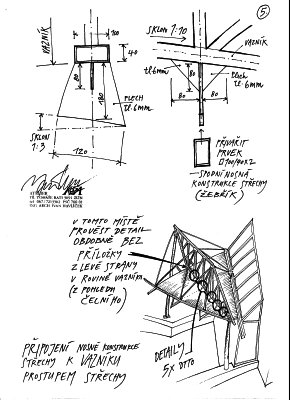 5
VAZNÍK
100
40
80
180
PLECH
tl. 6mm
SKLON
1:3
120
SKLON 1:10
VAZNÍK
tl. 6mm
80
plech
tl. 6mm
80
80
PŘIVAŘIT
PRVEK
SPODNÍ NOSNÁ
KONSTRUKCE STŘECHY
(ŽEBŘÍK)
V TOMTO MÍSTĚ
PROVÉST DETAIL
OBDOBNĚ BEZ
PŘÍLOŽKY
Z LEVÉ STRANY
V ROVINĚ VAZNÍKU
(Z POHLEDU
ČELNÍHO)
DETAILY
5x DTTO
PŘIPOJENÍ NOSNÉ KONSTRUKCE
STŘECHY K VAZNÍKU
PROSTUPEM STŘECHY